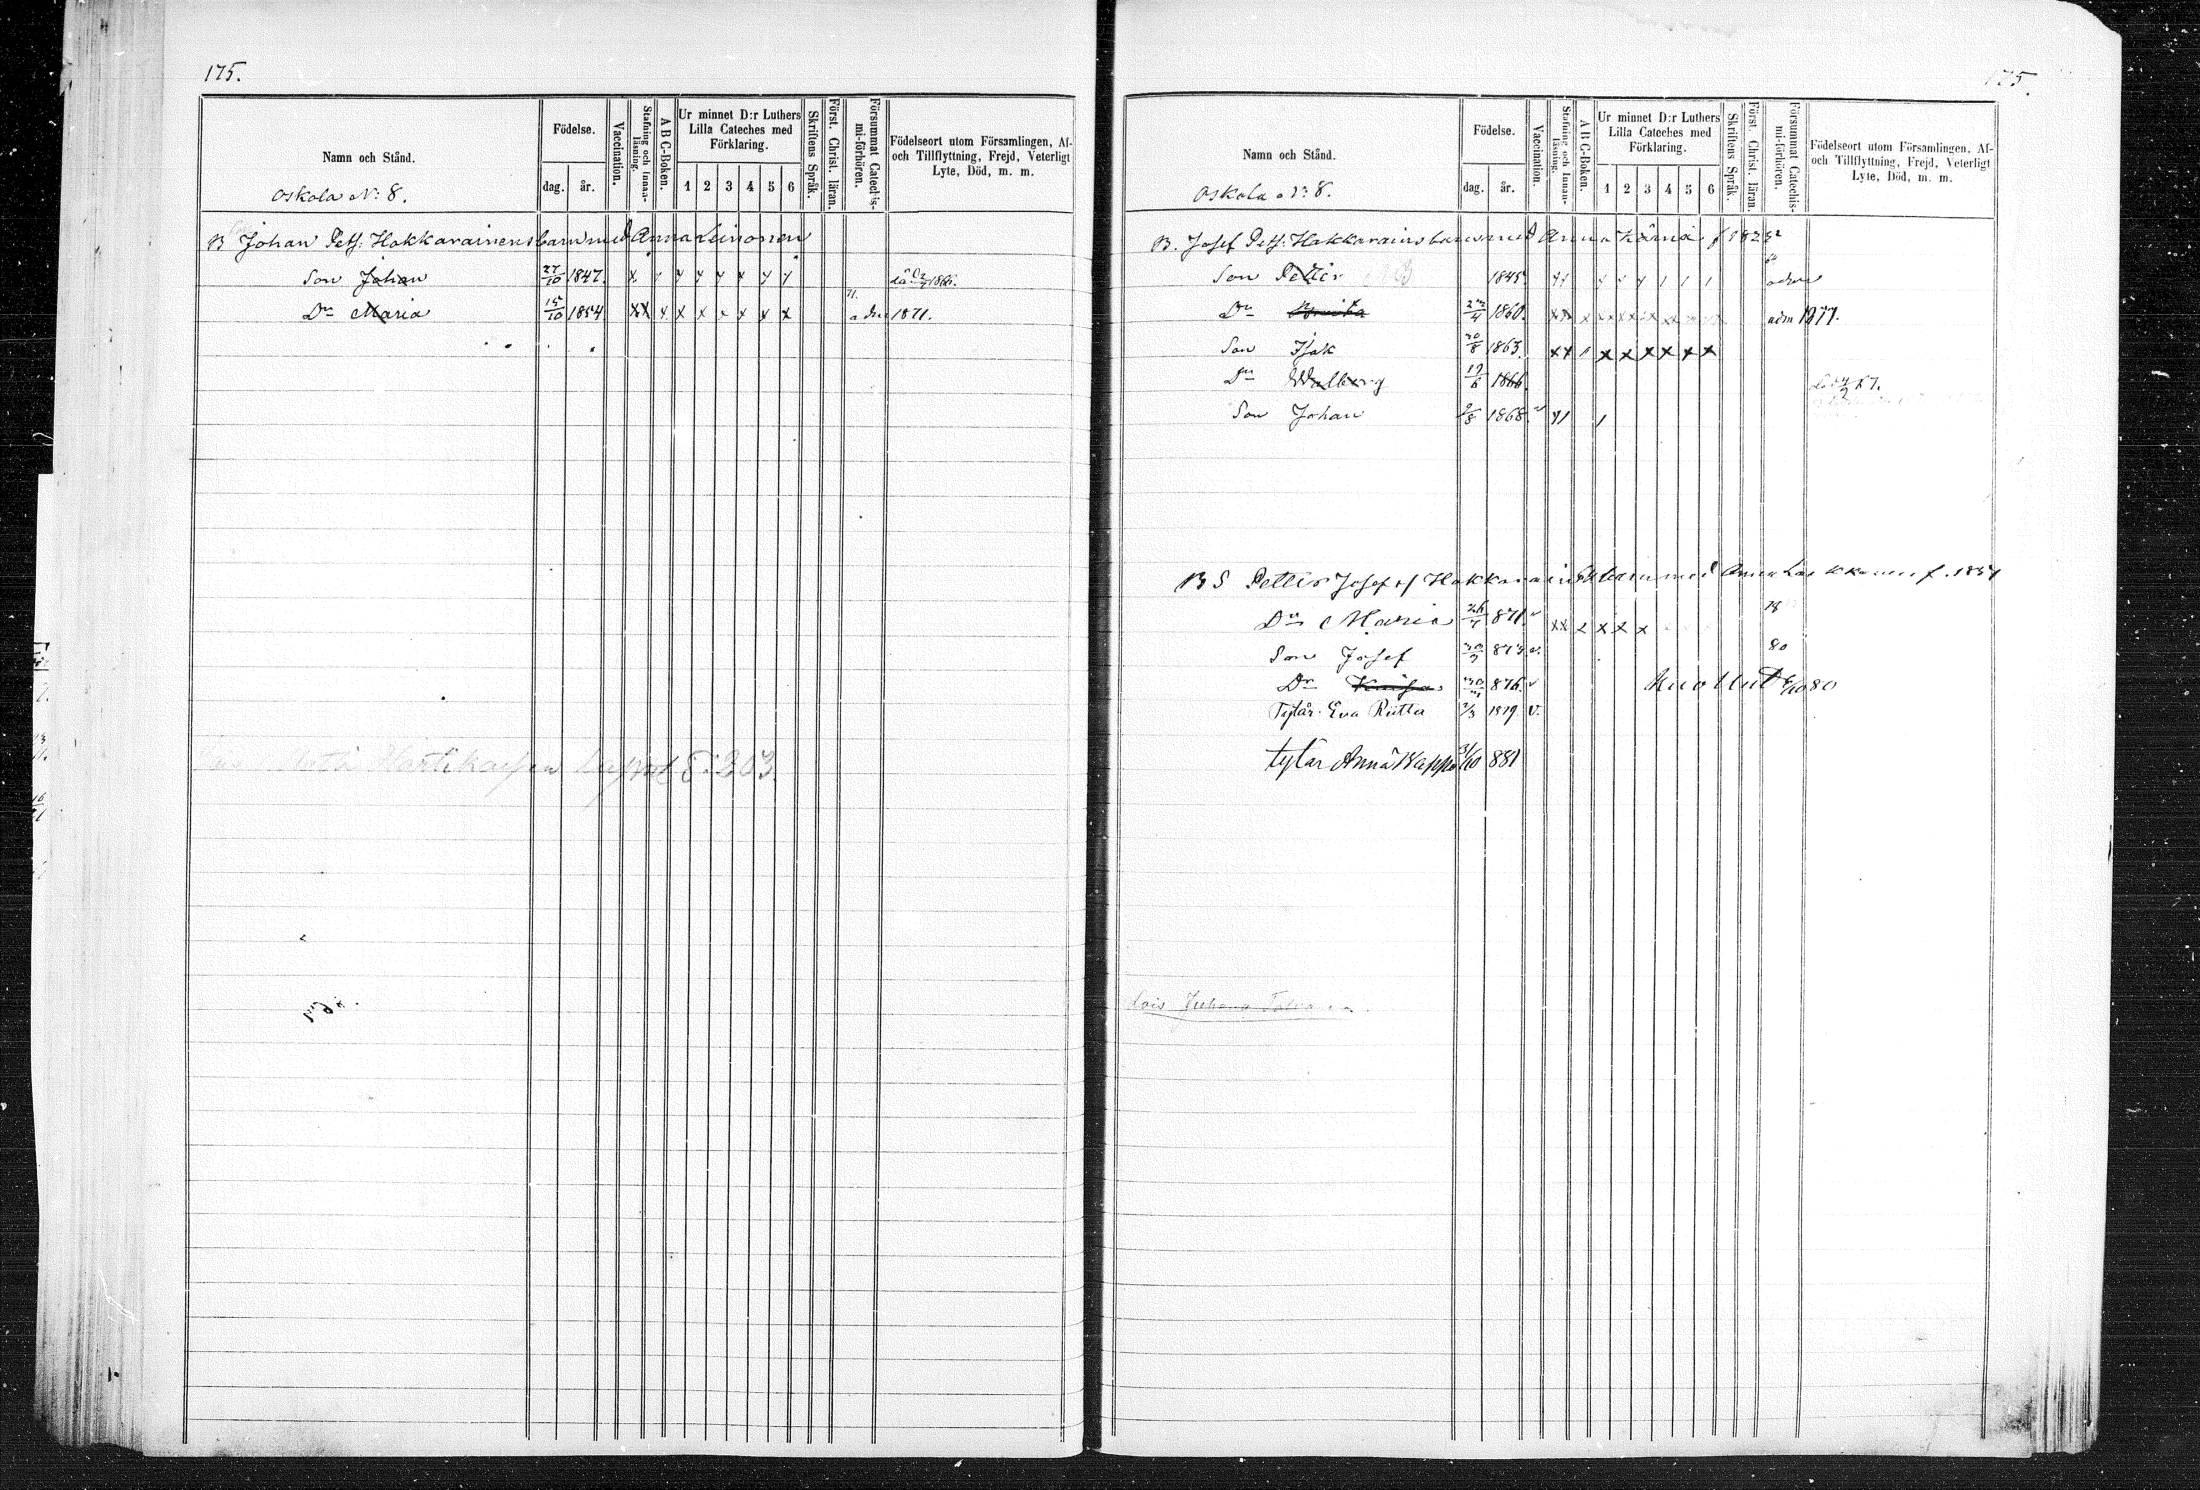 175.
Namn och Stånd.
Oskola N:o 8.
Födelse.
dag.
år.
Vaccination.
Stafning och Innan-läsning.
A B C-Boken.
Ur minnet D:r Luthers
Lilla Cateches med
Förklaring.
1 2 3 4 5 6
Skriftens Språk.
Först. Christ. läran.
Försummat Catechis-
mi-förhören.
Födelseort utom Församlingen, Af-
och Tillflyttning, Frejd, Veterligt
Lyte, Död, m. m.
B Johan Petf: Hakkarainens barn med Anna Leinonen
Son Johan 27/10 1847.
71.
Dr Maria 15/10 1854 xx x x x x x x x adm 1871.
Hartikaisen lapset S: 303
175.
Namn och Stånd.
Oskola N:o 8.
Födelse.
dag.
år.
Vaccination.
Stafning och Innan-läsning.
A B C-Boken.
Ur minnet D:r Luthers
Lilla Cateches med
Förklaring.
1 2 3 4 5 6
Skriftens Språk.
Först. Christ. läran.
Försummat Catechis-
mi-förhören.
Födelseort utom Församlingen, Af-
och Tillflyttning, Frejd, Veterligt
Lyte, Död, m. m.
B. Josef Petf: Hakkarains barn med Anna Kärnä f 182
Son Petter 1845
Dr 1860. adm 1877.
Son Isak 20/8 1863. xx x x x x x x
Dr Walborg 17/6 1866. 67.
Son Johan 9/8 1868.
B S Petter Josef sf Hakkarain barn med Anna f. 1851
78
Dr Maria 26/7 871 v xx x x x
80
Son Josef 873 v.
Dr Kaisa 876. v Kuollut 80
Tytär. Eva Riitta 2/3 1879. v.
tytär Anna Wappu 3/10 881
Lois Juhana